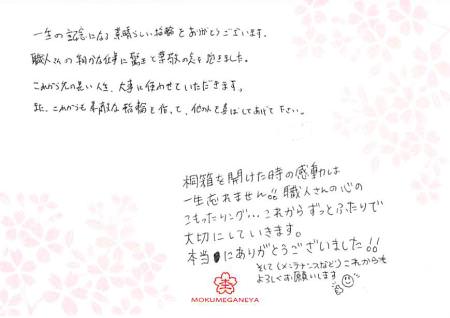 一生の記念になる素晴らしい指輪をありがとうございます。
職人さんの細かな仕事に驚きと尊敬の念を抱きました。
これから先の長い人生、大事に使わせていただきます。
また、これからも素敵な指輪を作って、他の人を喜ばしてあげて下さい。
桐箱を開けた時の感動は
一生忘れません!! 職人さんの心の
こもったリング…これからずっとふたりで
大切にしていきます。
本当にありがとうございました!!
そして(メンテナンスなど)これからも
よろしくお願いします
MOKUMEGANEYA